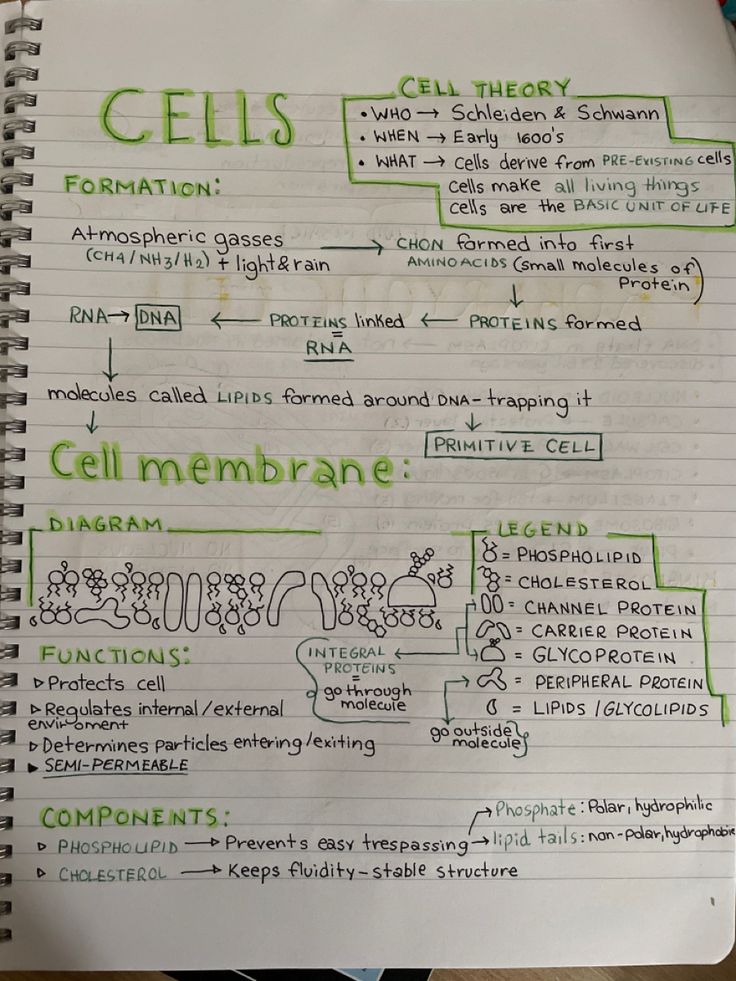 CELLS
CELL THEORY
• WHO → Schleiden & Schwann
• WHEN → Early 1600's
• WHAT → cells derive from PRE-EXISTING cells
cells make all living things
cells are the BASIC UNIT OF LIFE
FORMATION:
Atmospheric gasses → CHON formed into first
(CH4/NH3/H2) + light & rain
AMINOACIDS (small molecules of Protein)
RNA → DNA ← PROTEINS linked ← PROTEINS formed
=
RNA
molecules called LIPIDS formed around DNA - trapping it
PRIMITIVE CELL
Cell membrane:
DIAGRAM
LEGEND
= PHOSPHOLIPID
= CHOLESTEROL
= CHANNEL PROTEIN
= CARRIER PROTEIN
= GLYCOPROTEIN
= PERIPHERAL PROTEIN
= LIPIDS / GLYCOLIPIDS
INTEGRAL
PROTEINS
=
go through
molecule
go outside
molecule
FUNCTIONS:
▷ Protects cell
▷ Regulates internal/external
enviroment
▷ Determines particles entering/exiting
▶ SEMI-PERMEABLE
COMPONENTS:
▷ PHOSPHOLIPID → Prevents easy trespassing
→ Phosphate: Polar, hydrophilic
→ lipid tails: non-polar, hydrophobic
▷ CHOLESTEROL → Keeps fluidity - stable structure